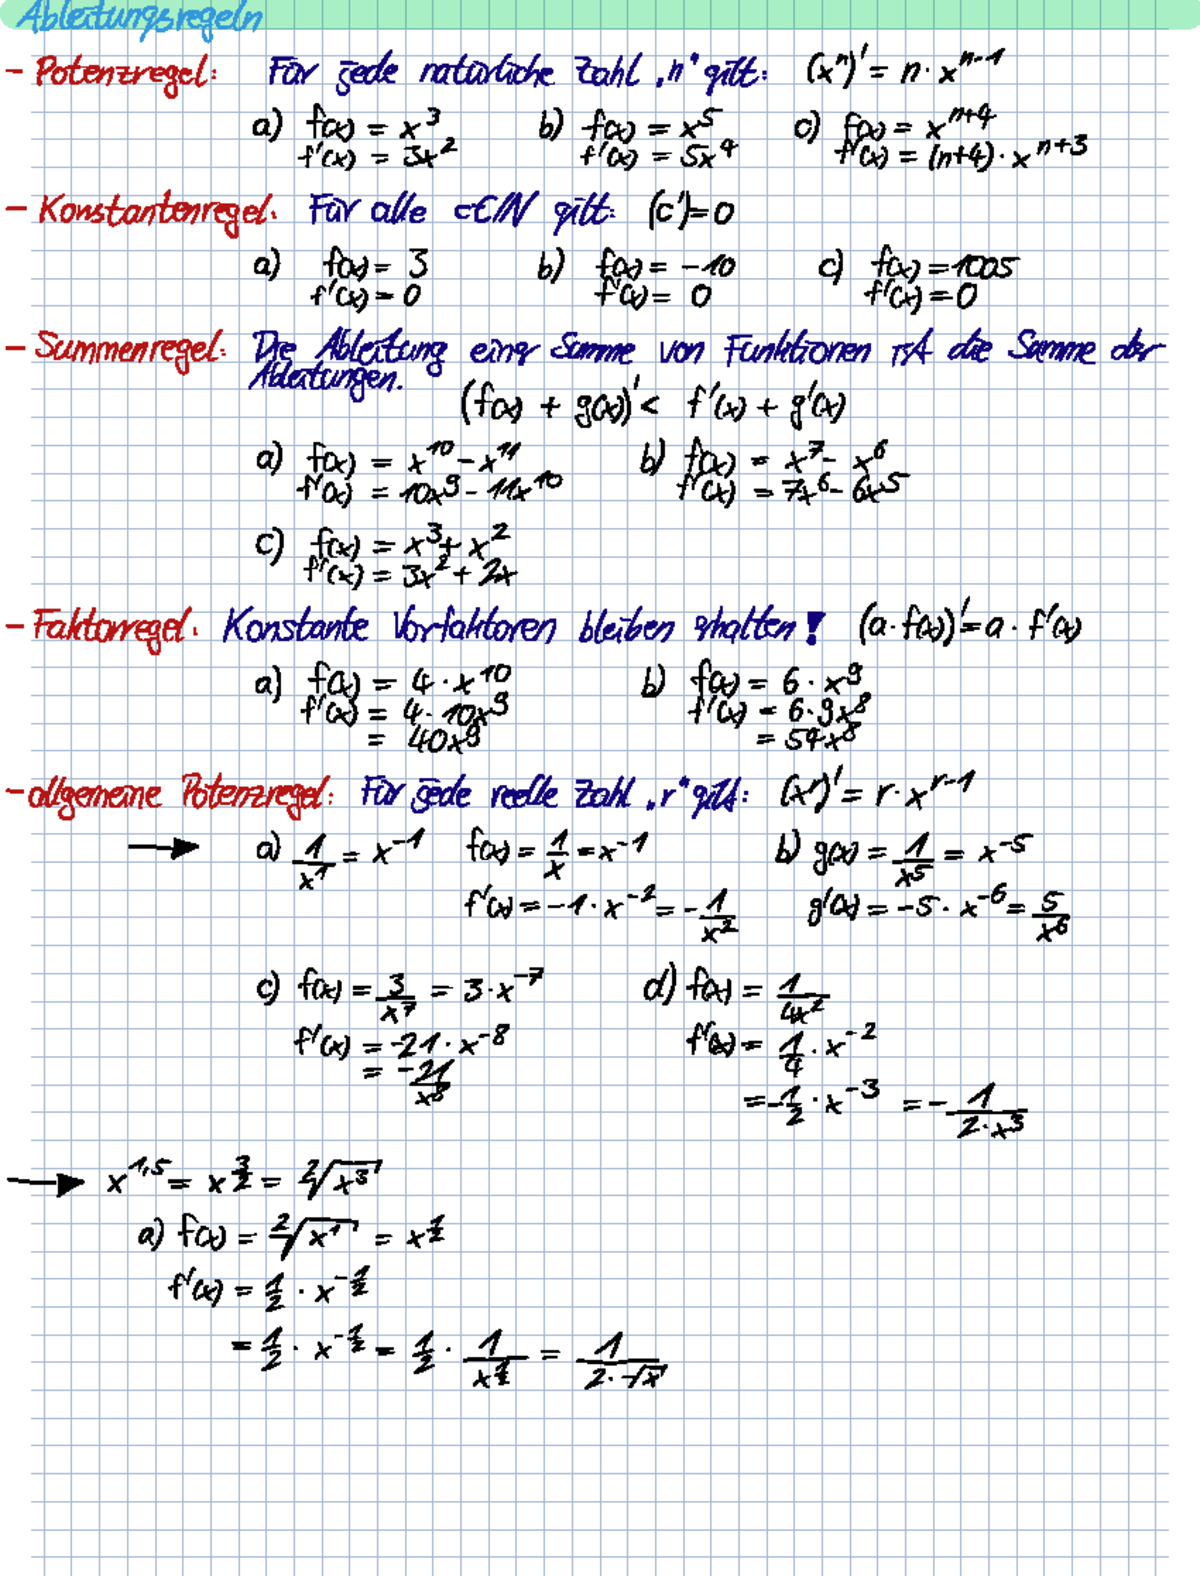 Ableitungsregeln
- Potenzregel: Für jede natürliche Zahl „n" gilt: (xⁿ)' = n · xⁿ⁻¹
a) f(x) = x³ b) f(x) = x⁵ c) f(x) = xⁿ⁺⁴
f'(x) = 3x² f'(x) = 5x⁴ f'(x) = (n+4) · xⁿ⁺³
- Konstantenregel: Für alle c∈ℕ gilt: (c')=0
a) f(x) = 3 b) f(x) = -10 c) f(x) = 1005
f'(x) = 0 f'(x) = 0 f'(x) = 0
- Summenregel: Die Ableitung einer Summe von Funktionen ist die Summe der
Ableitungen.
(f(x) + g(x))' < f'(x) + g'(x)
a) f(x) = x¹⁰ - x¹¹ b) f(x) = x⁷ - x⁶
f'(x) = 10x⁹ - 11x¹⁰ f'(x) = 7x⁶ - 6x⁵
c) f(x) = x³ + x²
f'(x) = 3x² + 2x
- Faktorregel: Konstante Vorfaktoren bleiben erhalten! (a · f(x))' = a · f'(x)
a) f(x) = 4 · x¹⁰ b) f(x) = 6 · x⁹
f'(x) = 4 · 10x⁹ f'(x) = 6 · 9x⁸
= 40x⁹ = 54x⁸
- allgemeine Potenzregel: Für jede reelle Zahl „r" gilt: (xʳ)' = r · xʳ⁻¹
→ a) 1/x¹ = x⁻¹ f(x) = 1/x = x⁻¹ b) g(x) = 1/x⁵ = x⁻⁵
f'(x) = -1 · x⁻² = -1/x² g'(x) = -5 · x⁻⁶ = 5/x⁶
c) f(x) = 3/x⁷ = 3 · x⁻⁷ d) f(x) = 1/4x²
f'(x) = -21 · x⁻⁸ f'(x) = 1/4 · x⁻²
= -21/x⁸ = -1/2 · x⁻³ = -1/(2 · x³)
→ x^1,5 = x^(3/2) = ²√x³
a) f(x) = ²√x¹ = x^(1/2)
f'(x) = 1/2 · x^(-1/2)
= 1/2 · x^(-1/2) = 1/2 · 1/x^(1/2) = 1/(2 · √x)